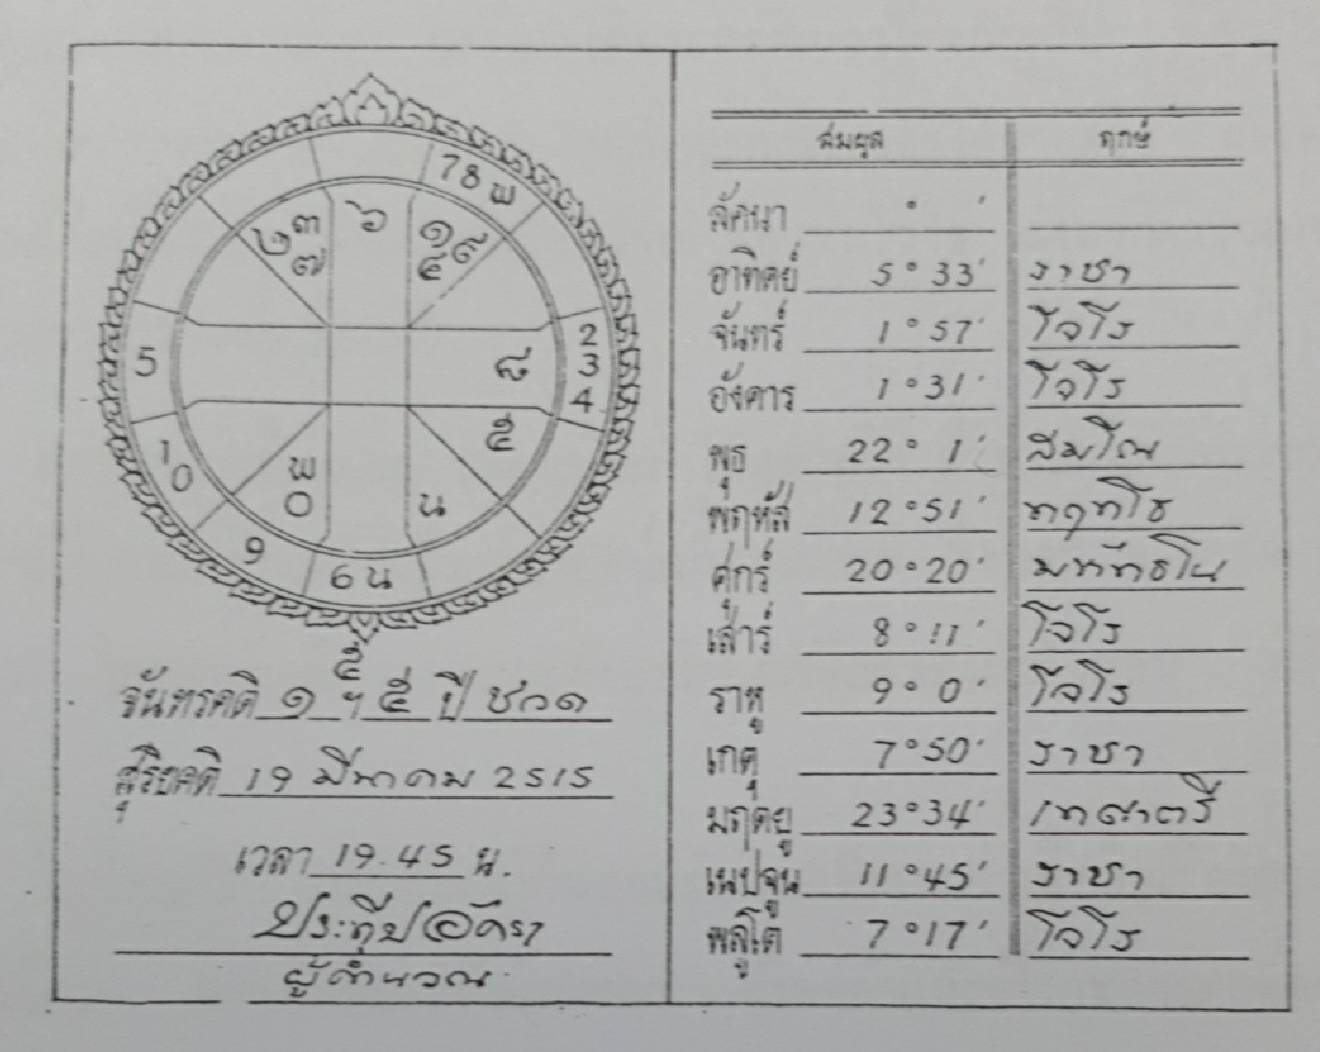 78 พ
๒ ๓ ๗
๖
๑ ๙ ๕
5
2 3 4
๘
๕
10
พ 0
น
9
6 น
๕
จันทรคติ ๑ ฯ ๕ ปี ชวด
สุริยคติ 19 มีนาคม 2515
เวลา 19.45 น.
ประทีป อัครา
ผู้คำนวณ
สมผุส ฤกษ์
ลัคนา ° ′
อาทิตย์ 5° 33′ ราชา
จันทร์ 1° 57′ โจโร
อังคาร 1° 31′ โจโร
พุธ 22° 1′ สมโณ
พฤหัส 12° 51′ ทฤทโธ
ศุกร์ 20° 20′ มหัทธโน
เสาร์ 8° 11′ โจโร
ราหู 9° 0′ โจโร
เกตุ 7° 50′ ราชา
มฤตยู 23° 34′ เทศาตรี
เนปจูน 11° 45′ ราชา
พลูโต 7° 17′ โจโร